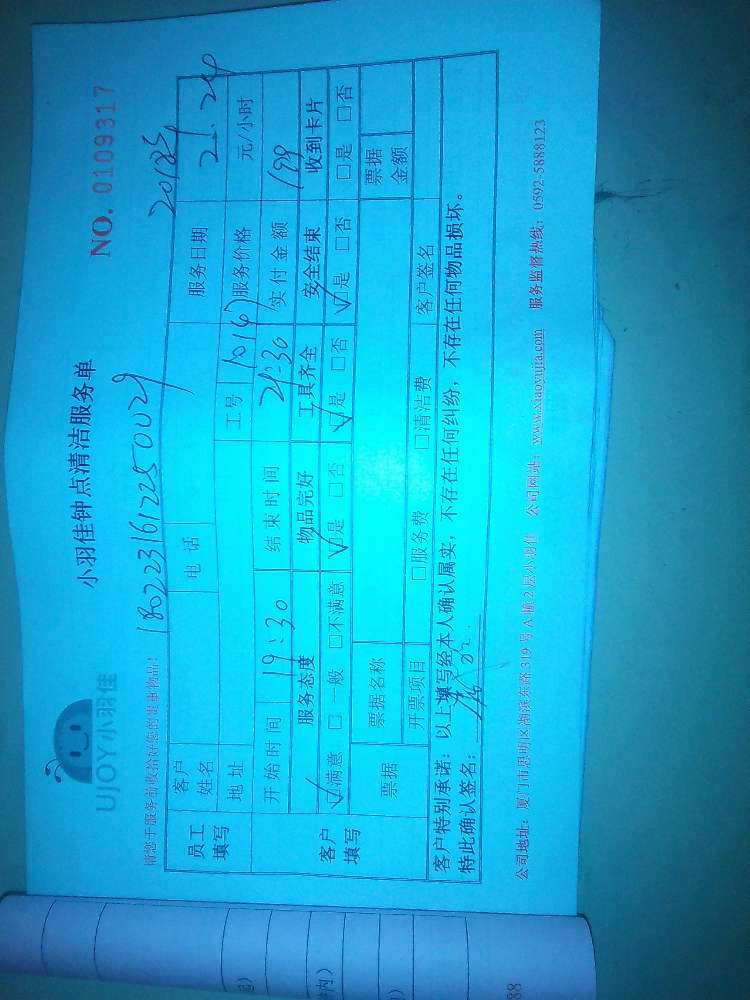 UJOY小羽佳
小羽佳钟点清洁服务单
NO. 0109317
请您于服务前收拾好您的贵重物品!
1802231612250029
员工填写 客户姓名 电话 服务日期
地址 工号 10147 服务价格 元/小时
客户填写 开始时间 19:30 结束时间 21:30 实付金额 199
服务态度 物品完好 工具齐全 安全结束 收到卡片
☑满意 □一般 □不满意 ☑是 □否 ☑是 □否 ☑是 □否 □是 □否
票据 票据名称 票据金额
开票项目 □服务费 □清洁费 客户签名
客户特别承诺:以上填写经本人确认属实,不存在任何纠纷,不存在任何物品损坏。
特此确认签名:
公司地址:厦门市思明区湖滨东路319号A幢2层小羽佳 公司网站:www.xiaoyujia.com 服务监督热线:0592-5888123